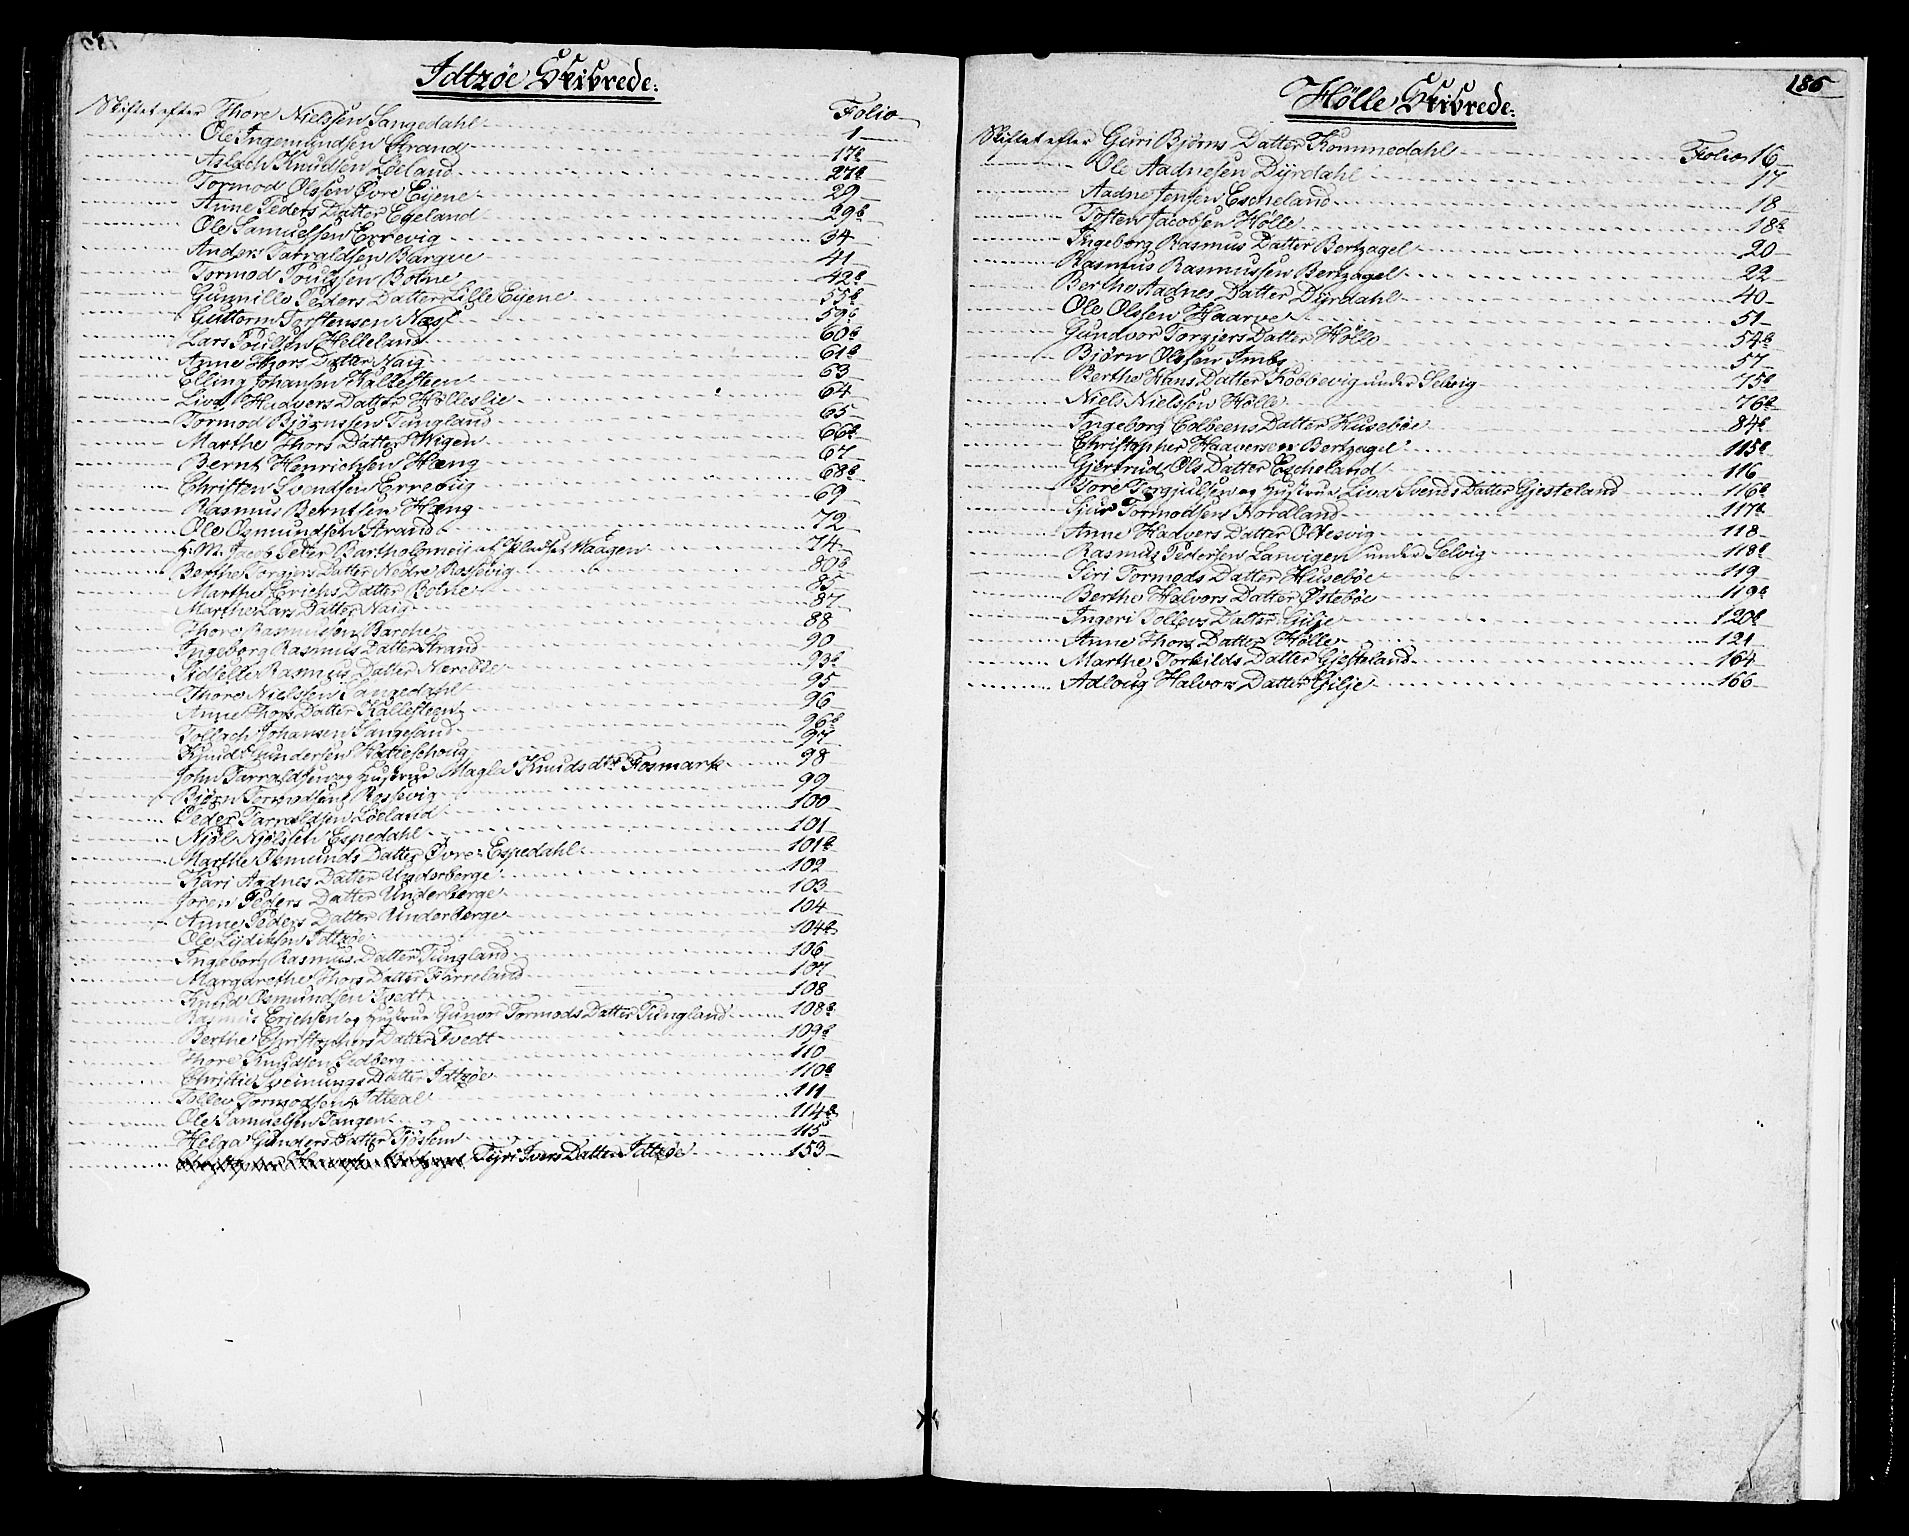 Idtzøe Skibrede:
Skiftet efter Thore Nielssen Sangedahl Folio 1
Ole Ingemundsen Strand 17b
Aslach Knudsen Løeland 27b
Tormod Olssen Øvre Eijene 29
Anne Peders Datter Egeland 29b
Ole Samuelsen Errevig 34
Anders Tarraldsen Bargve 41
Tormod Poulssen Botne 42b
Gunnille Peders Datter Lille Eijene 55b
Guttorm Torstensen Næss 59b
Lars Poulsen Helleland 60b
Anne Thors Datter Naig 61b
Elling Johansen Kallesteen 63
Liva Hadvers Datter Hølleslie 64
Tormod Bjørnssen Tungland 65
Marthe Thors Datter Wigen 66b
Bernt Henrichsen Hæng 67
Christen Svendsen Errevig 68b
Rasmus Berntsen Hæng 69
Ole Osmundsen Strand 72
S: M: Jacob Peter Bartholomeii af Pladset Waagen 74
Berthe Torgjers Datter Nedre Rossevig 80b
Marthe Erichs Datter Botne 85
Marthe Lars Datter Naig 87
Thore Rasmussen Barche 88
Ingeborg Rasmus Datter Strand 90
Sidselle Rasmus Datter Nerebøe 93b
Thore Nielssen Sangedahl 95
Anne Thors Datter Kallesteen 96
Tollach Johansen Sangesand 96b
Knud Gundersen Hatleschoug 97
John Tarraldsen og Hustrue Magla Knuds dtr Fosmark 98
Bjørn Tormodsen Rossevig 99
Peder Tarraldsen Løeland 100
Njøl Njølssen Espedahl 101
Marthe Osmunds Datter Øvre Espedahl 101b
Kari Aadnes Datter Underberge 102
Joren Peders Datter Underberge 103
Anne Peders Datter Underberge 104
Ole Lydiksen Idtzøe 104b
Ingeborg Rasmus Datter Tungland 106
Margarethe Thors Datter Førreland 107
Knud Osmundsen Tvedt 108
Rasmus Erichsen og Hustrue Gunor Tormods Datter Tungland 108b
Berthe Christophers Datter Tvedt 109b
Thore Knudsen Sedberg 110
Christie Sveinungs Datter Idtzøe 110b
Tollev Tormodsen Idtzal 111
Ole Samuelsen Tangen 114b
Helga Gunders Datter Tjøstem 115
Tyri Ivers Datter Idtzøe 153
186
Hölle Skibrede:
Skiftet efter Guri Bjørns Datter Kommedahl Folio 16
Ole Aadnesen Dyrdahl 17
Aadne Jensen Escheland 18
Tosten Jacobsen Hølle 18b
Ingeborg Rasmus Datter Bertzagel 20
Rasmus Rasmussen Bertzagel 22
Berthe Aadnes Datter Dyrdahl 40
Ole Olssen Haarve 51
Gundvor Torgjers Datter Hølle 54b
Bjørn Olssen Imbs 57
Berthe Hans Datter Kobbevig under Selvig 75b
Niels Nielssen Hølle 76b
Ingeborg Colbeens Datter Husebøe 84b
Christopher Haaversen Bertzagel 115b
Gjertrud Ols Datter Escheland 116
Tore Torgjulsen og Hustrue Liva Svends Datter Gjesteland 116b
Sjur Tormodsen Nordland 117b
Anne Hadvers Datter Odesvig 118
Rasmus Pedersen Lanvigen under Selvig 118b
Siri Tormods Datter Husebøe 119
Berthe Halvors Datter Østebøe 119b
Ingeri Tollevs Datter Gilje 120b
Anne Thors Datter Hølle 121
Marthe Torkilds Datter Gjesteland 164
Adloug Halvors Datter Gilje 166